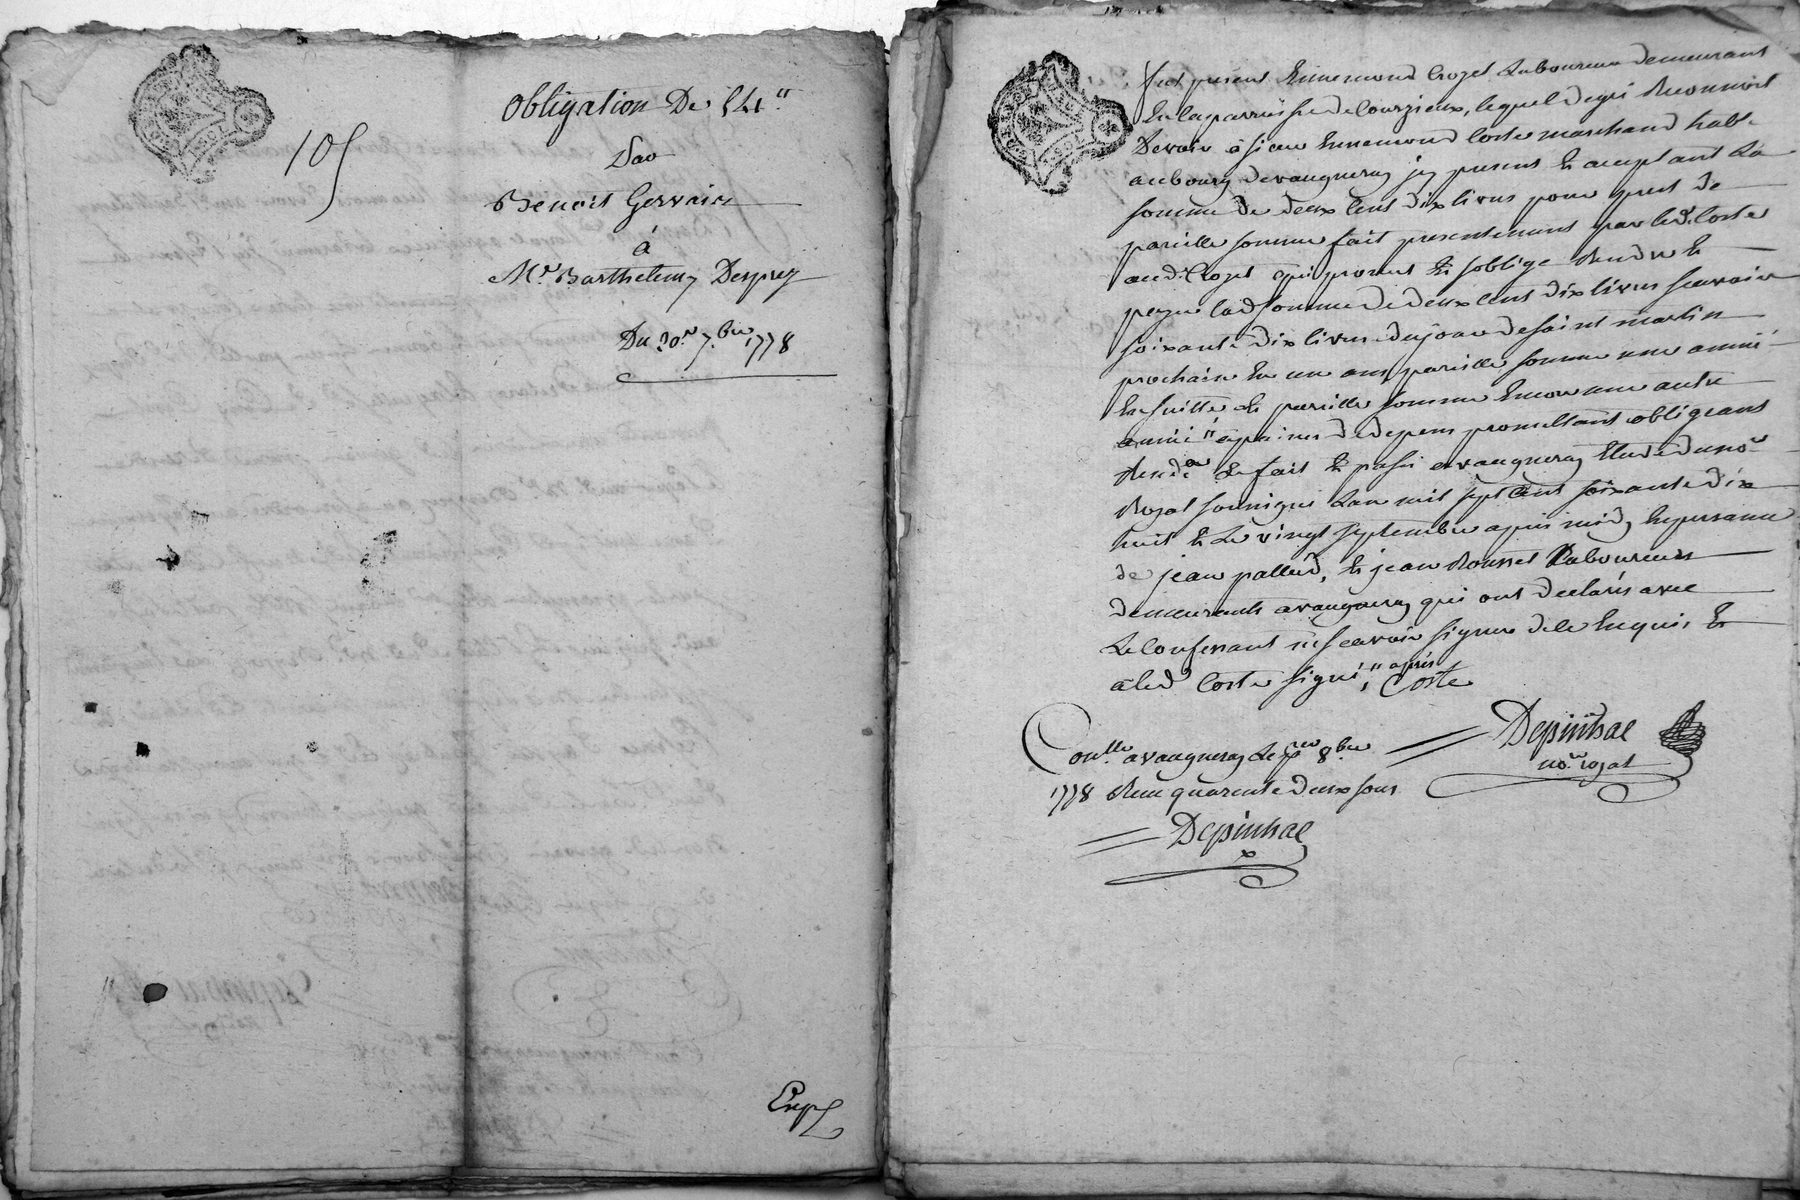 105
Obligation De 54ᵗᵗ
Par
Benoit Gervais
à
Mʳ Barthelemy Desprez
Du 20.ᵉ 7.bre 1778
Exp
fut present Ennemond Crozet Laboureur demeurant
En la parroisse de Courzieux, lequel de gré Reconnoit
Devoir à sieur Ennemond Coste marchand habt
au bourg de vaugneray jcy present et aceptant La
somme de deux Cent dix livres pour prest de
pareille somme fait presentement par led. Coste
aud. Crozet qui promet Et soblige Rendre Et
payer lad. somme de deux cent dix livres scavoir
soixante dix livres du jour de saint martin
prochain En un an, pareille somme une année
Ensuitte et pareille somme Encore une autre
année à peines de depens promettant obligeant
Renᵒⁿ &ᵃ fait Et passé a vaugneray Etude du noʳᵉ
Royal soussigné Lan mil sept cent soixante dix
huit Et Le vingt septembre après midy En presance
de jean pallud, Et jean Rousset Laboureurs
demeurants a vaugneray qui ont declarés avec
Le Confessant ne scavoir signer de ce Enquis Et
a led. Coste signé, après Coste
Depinhac
noʳᵉ royal
Conllé a vaugneray Le per 8.bre
1778 Reçu quarente deux sous
Depinhac